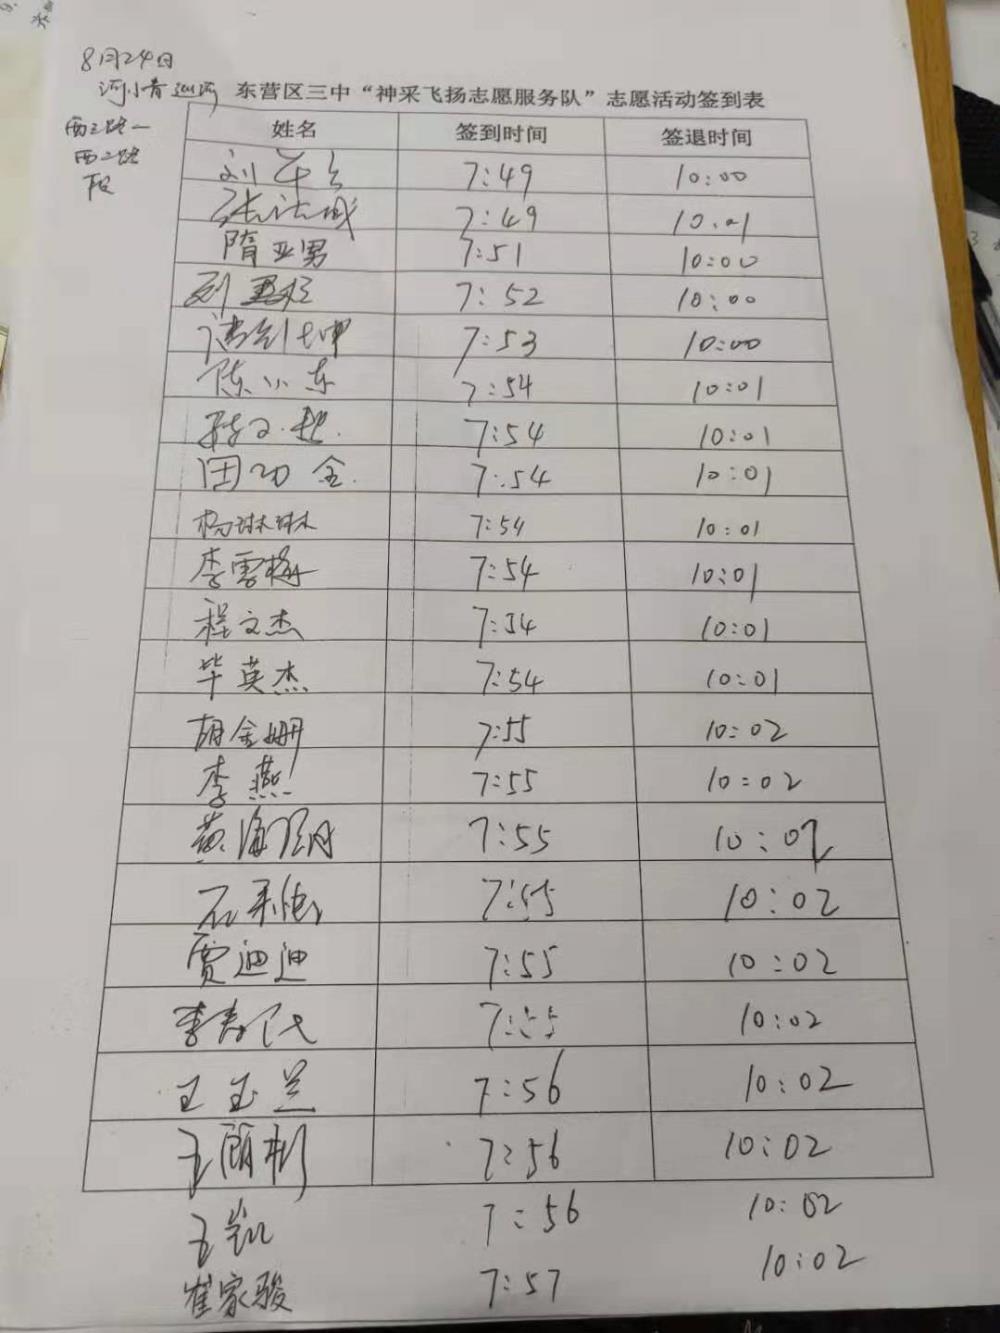 8月24日
河小青巡河 东营区三中“神采飞扬志愿服务队”志愿活动签到表
西三路一
西二路
段
姓名 签到时间 签退时间
刘 7:49 10:00
张 7:49 10.01
隋亚男 7:51 10:00
刘 7:52 10:00
7:53 10:00
陈小东 7:54 10:01
7:54 10:01
田功全. 7:.54 10:01
杨琳琳 7:54 10:01
李雪梅 7:54 10:01
程文杰 7:54 10:01
毕英杰 7:54 10:01
胡金娜 7:55 10:02
李燕 7:55 10:02
黄海 7:55 10:02
石 7:55 10:02
贾迪迪 7:55 10:02
李 7:55 10:02
王玉兰 7:56 10:02
王 7:56 10:02
王凯 7:56 10:02
崔家骏 7:57 10:02